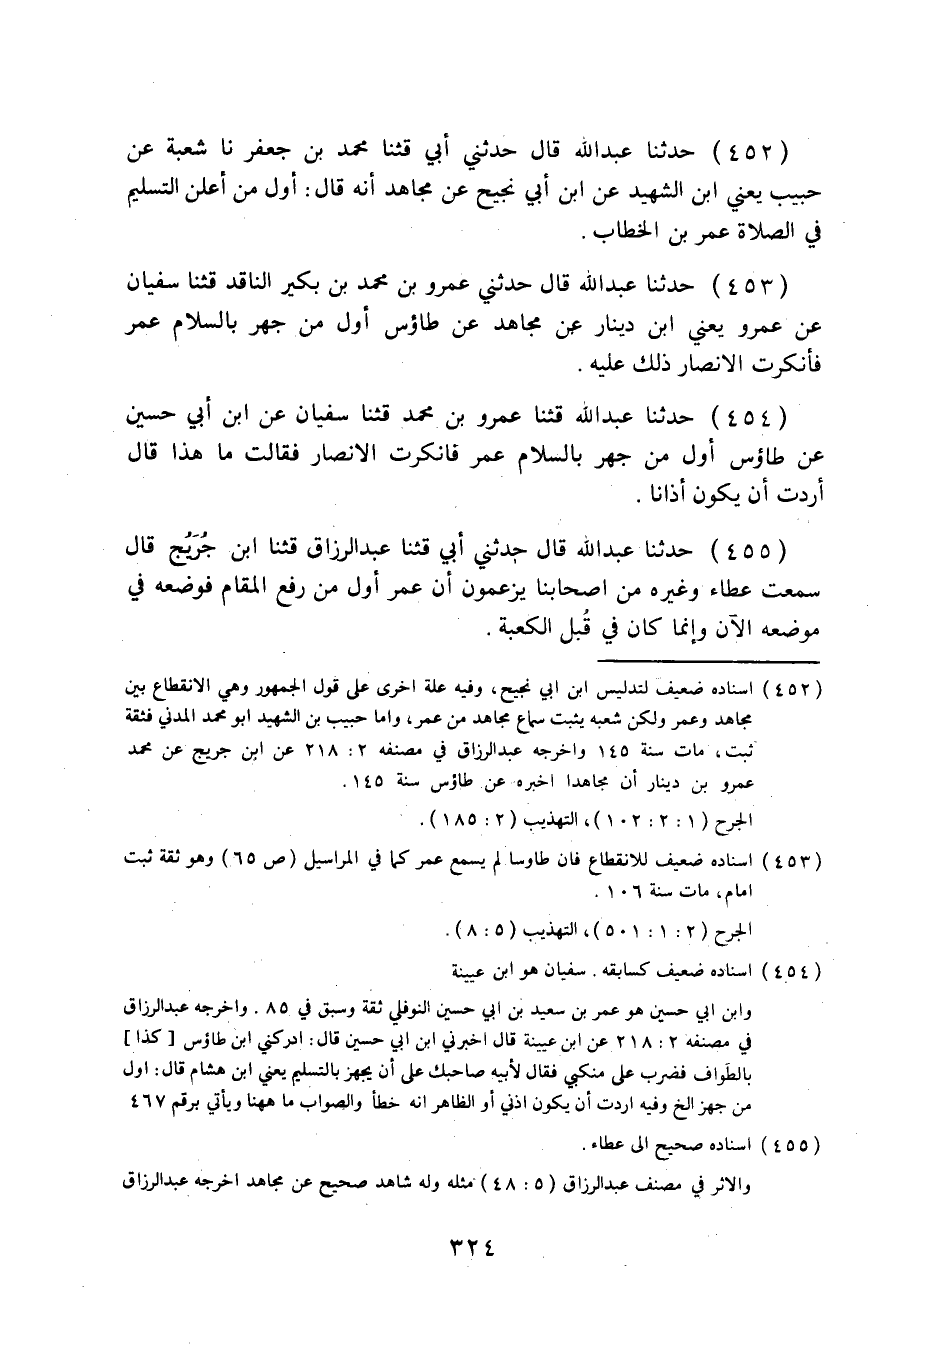 (٤٥٢) حدثنا عبدالله قال حدثني أبي قثنا محمد بن جعفر نا شعبة عن
حبيب يعني ابن الشهيد عن ابن أبي نجيح عن مجاهد أنه قال: أول من أعلن التسليم
في الصلاة عمر بن الخطاب .
(٤٥٣) حدثنا عبدالله قال حدثني عمرو بن محمد بن بكير الناقد قثنا سفيان
عن عمرو يعني ابن دينار عن مجاهد عن طاؤس أول من جهر بالسلام عمر
فأنكرت الانصار ذلك عليه .
(٤٥٤) حدثنا عبدالله قثنا عمرو بن محمد قثنا سفيان عن ابن أبي حسين
عن طاؤس أول من جهر بالسلام عمر فانكرت الانصار فقالت ما هذا قال
أردت أن يكون أذانا .
(٤٥٥) حدثنا عبدالله قال حدثني أبي قثنا عبدالرزاق قثنا ابن جُرَيُج قال
سمعت عطاء وغيره من اصحابنا يزعمون أن عمر أول من رفع المقام فوضعه في
موضعه الآن وإنما كان في قُبل الكعبة .
(٤٥٢) اسناده ضعيف لتدليس ابن ابي نجيح، وفيه علة اخرى على قول الجمهور وهي الانقطاع بين
مجاهد وعمر ولكن شعبه يثبت سماع مجاهد من عمر، واما حبيب بن الشهيد ابو محمد المدني فثقة
ثبت، مات سنة ١٤٥ واخرجه عبدالرزاق في مصنفه ٢: ٢١٨ عن ابن جريج عن محمد
عمرو بن دينار أن مجاهدا اخبره عن طاؤس سنة ١٤٥.
الجرح (١: ٢: ١٠٢)، التهذيب (٢: ١٨٥).
(٤٥٣) اسناده ضعيف للانقطاع فان طاوسا لم يسمع عمر كما في المراسيل (ص ٦٥) وهو ثقة ثبت
امام، مات سنة ١٠٦ .
الجرح (٢: ١: ٥٠١)، التهذيب (٥: ٨).
(٤٥٤) اسناده ضعيف كسابقه . سفيان هو ابن عيينة
وابن ابي حسين هو عمر بن سعيد بن ابي حسين النوفلي ثقة وسبق في ٨٥ . واخرجه عبدالرزاق
في مصنفه ٢: ٢١٨ عن ابن عيينة قال اخبرني ابن ابي حسين قال: ادركني ابن طاؤس [كذا]
بالطواف فضرب على منكبي فقال لأبيه صاحبك على أن يجهز بالتسليم يعني ابن هشام قال: اول
من جهز الخ وفيه اردت أن يكون اذني أو الظاهر انه خطأ والصواب ما ههنا ويأتي برقم ٤٦٧
(٤٥٥) اسناده صحيح الى عطاء .
والاثر في مصنف عبدالرزاق (٥: ٤٨) مثله وله شاهد صحيح عن مجاهد اخرجه عبدالرزاق
٣٢٤